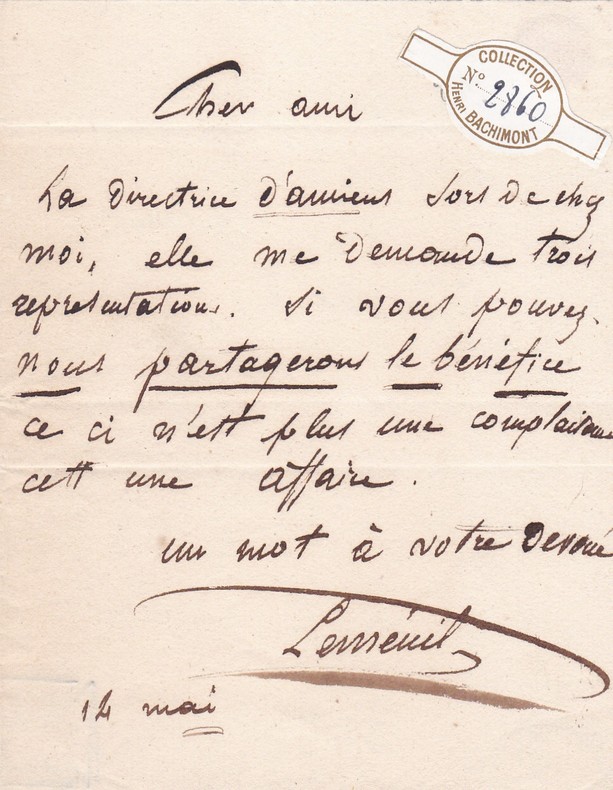 COLLECTION
N° 2860
HENRI BACHIMONT
Cher ami
La Directrice d'amiens sors de chez
moi, elle me Demande trois
représentations. Si vous pouvez
nous partagerons le bénéfice
ce ci n'est plus une complaisance
cett une affaire.
un mot à votre Devoué
Lemeniel
14 mai